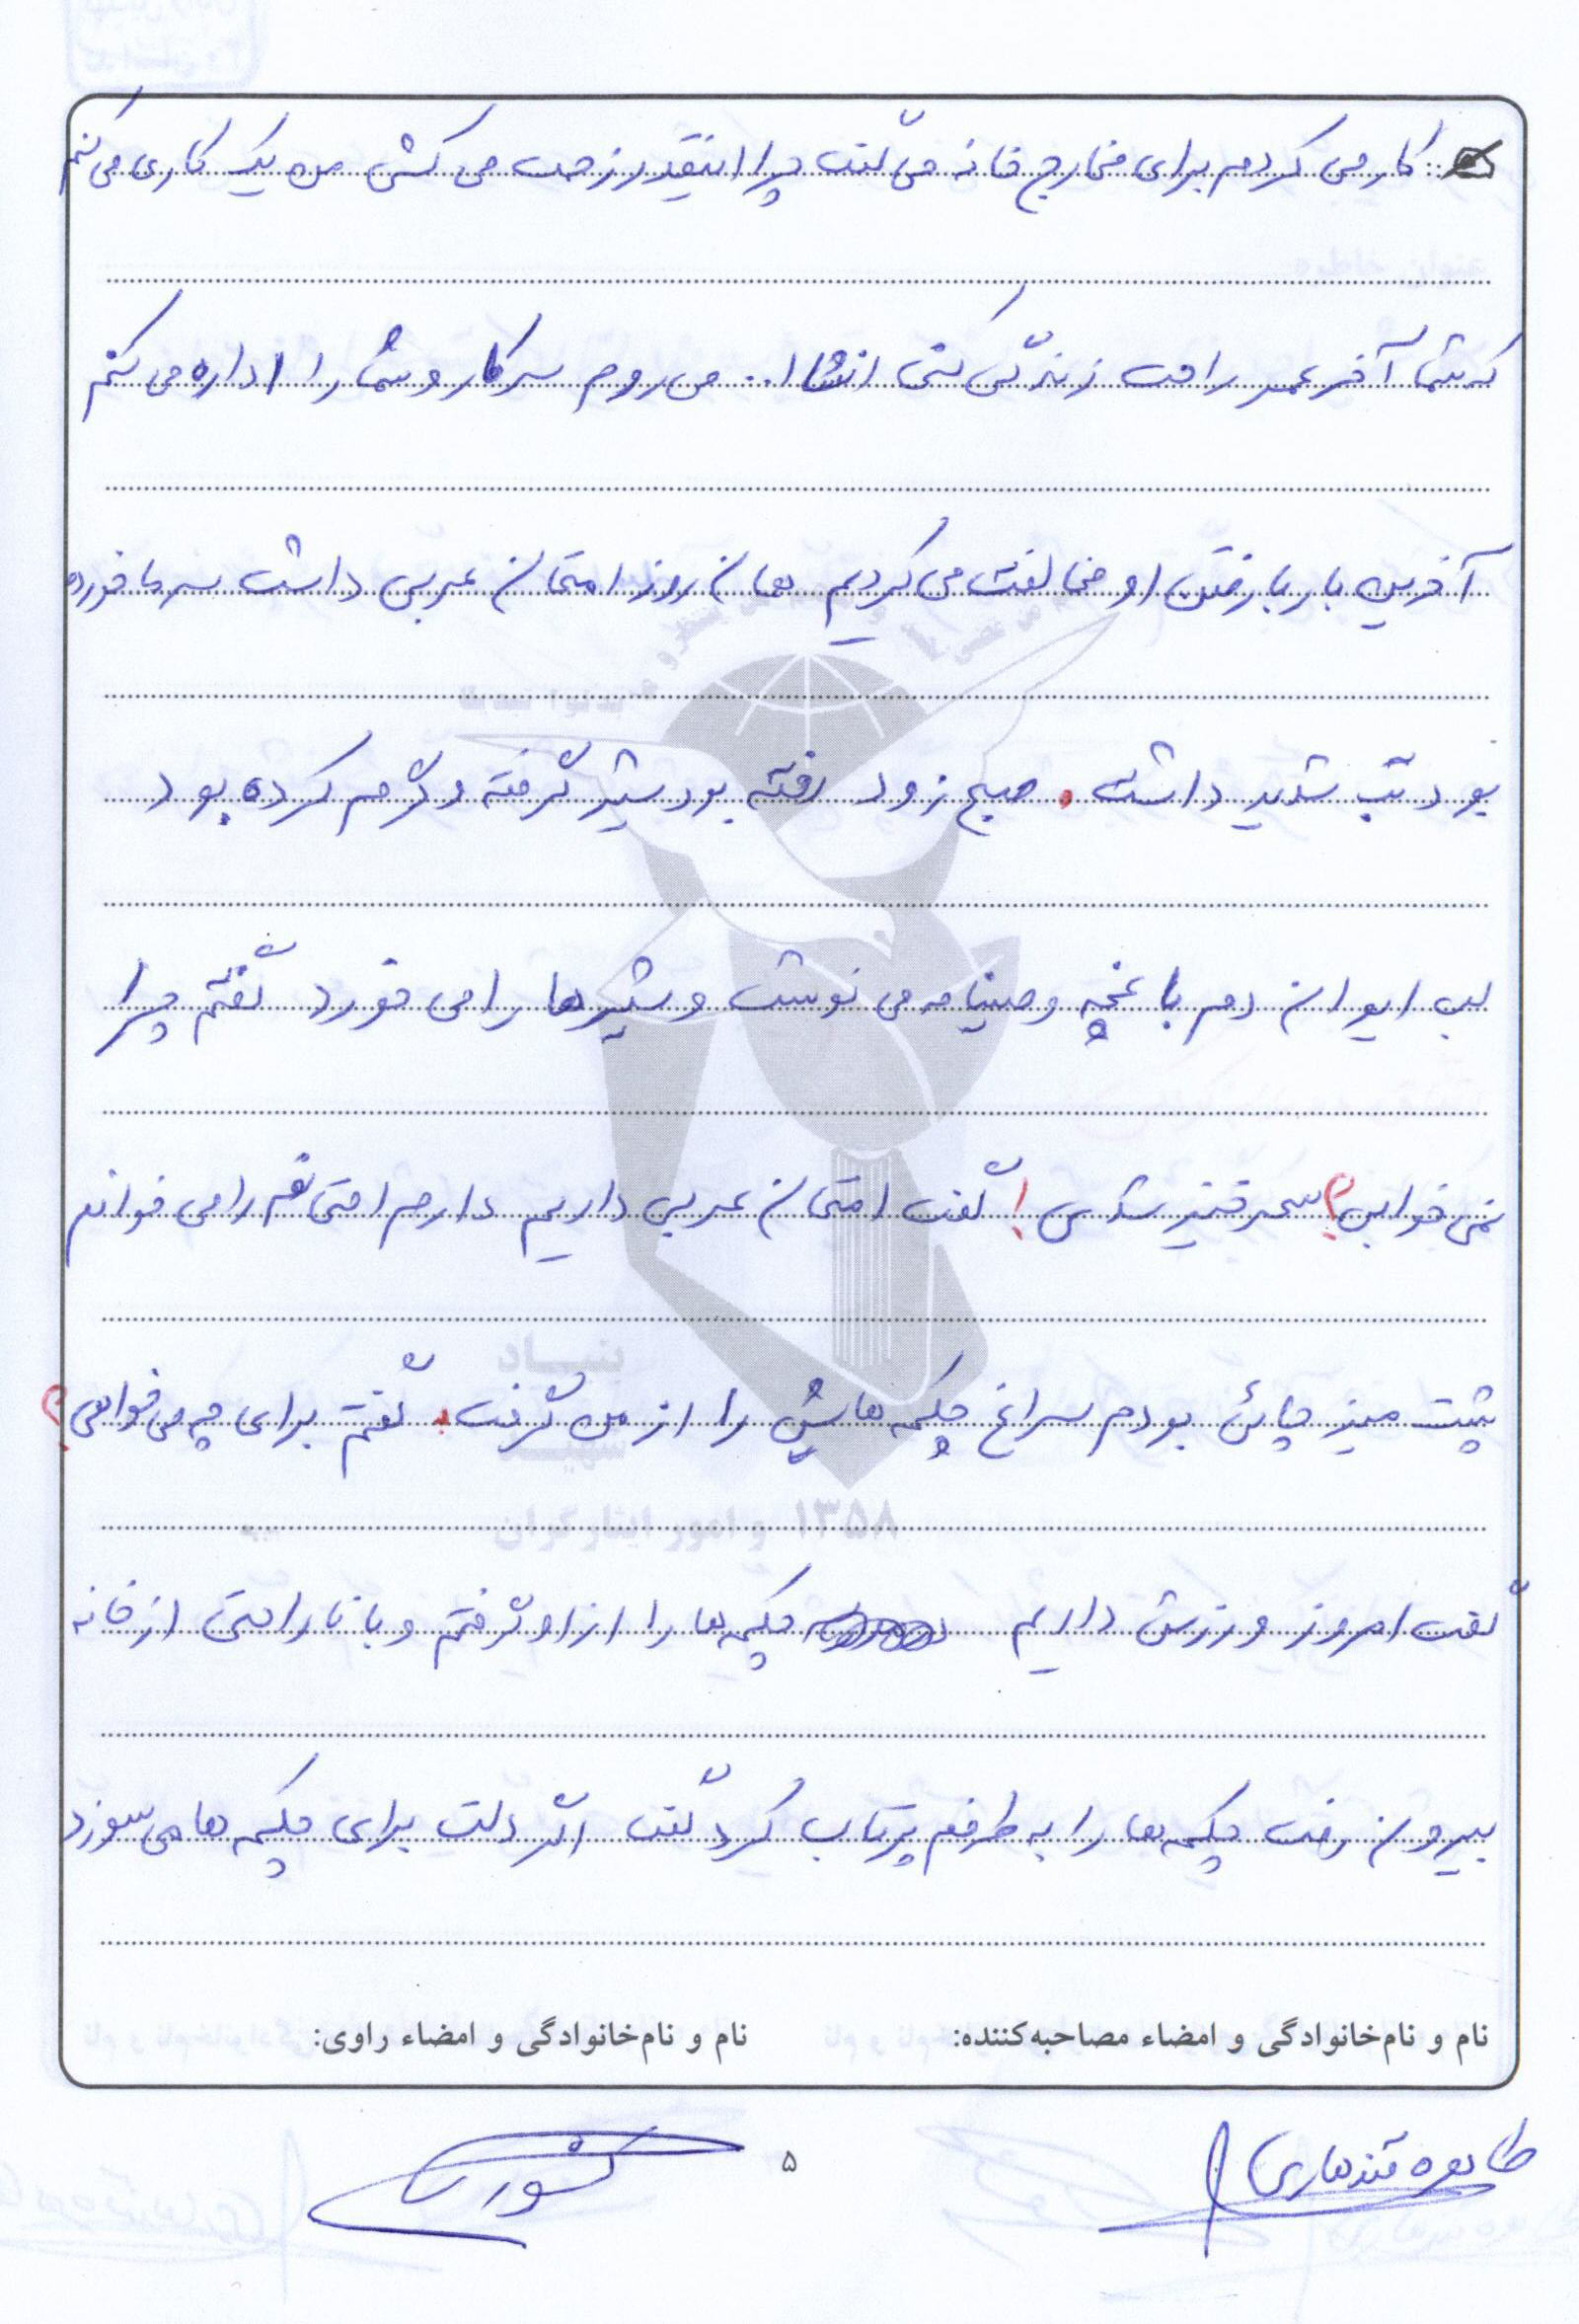 کار می کردم برای مخارج خانه می گفت چرا اینقدر زحمت می کشی من یک کاری می کنم
که شما آخر عمر راحت زندگی کنی انشاا.. می روم سر کار و شما را اداره می کنم
آخرین بار با رفتن او مخالفت می کردیم همان روز امتحان عربی داشت سرما خورده
بود تب شدید داشت. صبح زود رفته بود شیر گرفته و گرم کرده بود
لب ایوان دم باغچه وصیتنامه می نوشت و شیرها را می خورد گفتم چرا
نمی خوابی؟ سحرخیز شدی! گفت امتحان عربی داریم دارم امتحانم را می خوانم
پشت میز چائی بودم سراغ چکمه هایش را از من گرفت. گفتم برای چه می خواهی؟
گفت امروز ورزش داریم چکمه ها را از او گرفتم و با ناراحتی از خانه
بیرون رفت چکمه ها را به طرفم پرتاب کرد گفت اگر دلت برای چکمه ها می سوزد
نام و نام‌خانوادگی و امضاء مصاحبه‌کننده: نام و نام‌خانوادگی و امضاء راوی:
طاهره قندهاری ۵
بنیاد
شهید
و امور ایثارگران ۱۳۵۸